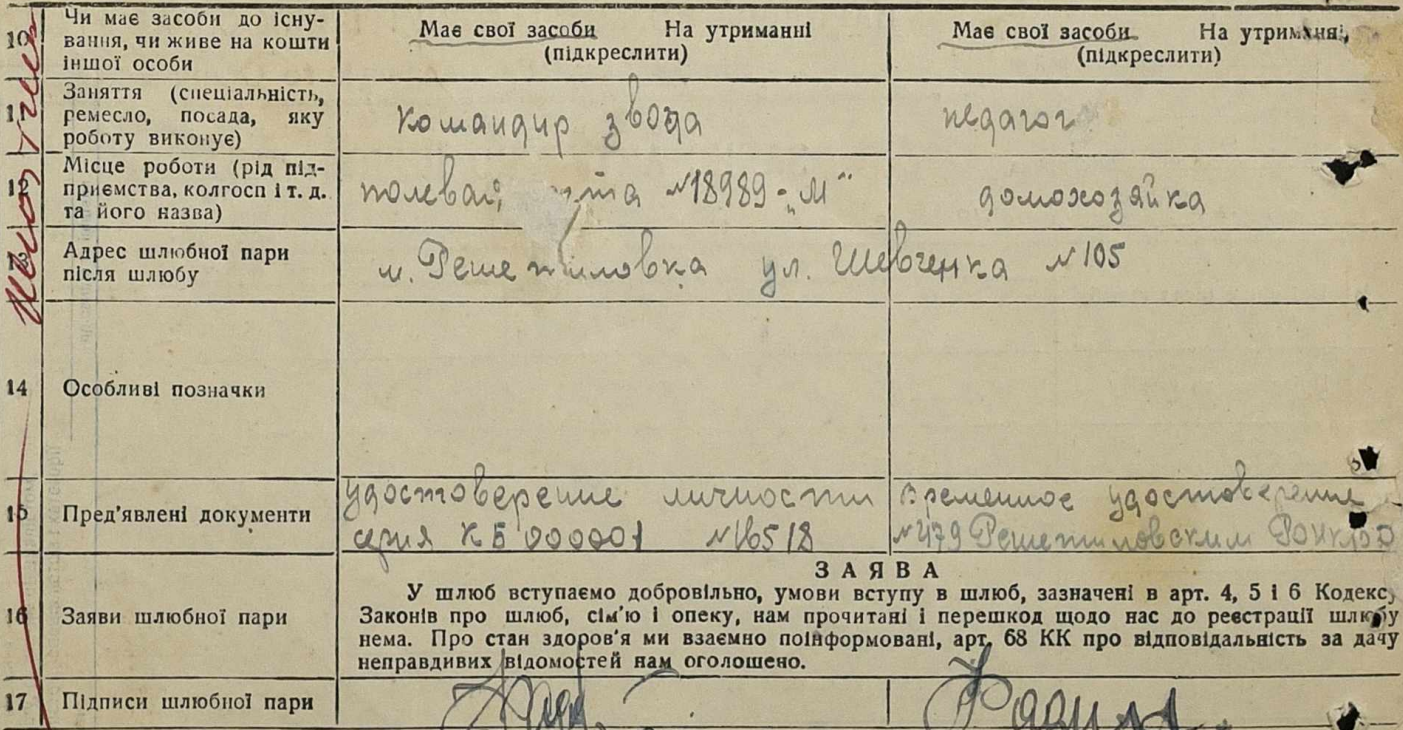 10 Чи має засоби до існу-
вання, чи живе на кошти
іншої особи
Має свої засоби На утриманні
(підкреслити)
Має свої засоби На утриманні,
(підкреслити)
11 Заняття (спеціальність,
ремесло, посада, яку
роботу виконує)
командир звода
педагог
12 Місце роботи (рід під-
приємства, колгосп і т. д.
та його назва)
полевая №18989-„М"
домохозяйка
13 Адрес шлюбної пари
після шлюбу
м. Решетиловка ул. Шевченка №105
14 Особливі позначки
15 Пред'явлені документи
удостоверение личности
серия КБ 000001 №16518
временное удостоверение
№479 Решетиловским
16 Заяви шлюбної пари
ЗАЯВА
У шлюб вступаємо добровільно, умови вступу в шлюб, зазначені в арт. 4, 5 і 6 Кодексу
Законів про шлюб, сім'ю і опеку, нам прочитані і перешкод щодо нас до реєстрації шлюбу
нема. Про стан здоров'я ми взаємно поінформовані, арт. 68 КК про відповідальність за дачу
неправдивих відомостей нам оголошено.
17 Підписи шлюбної пари